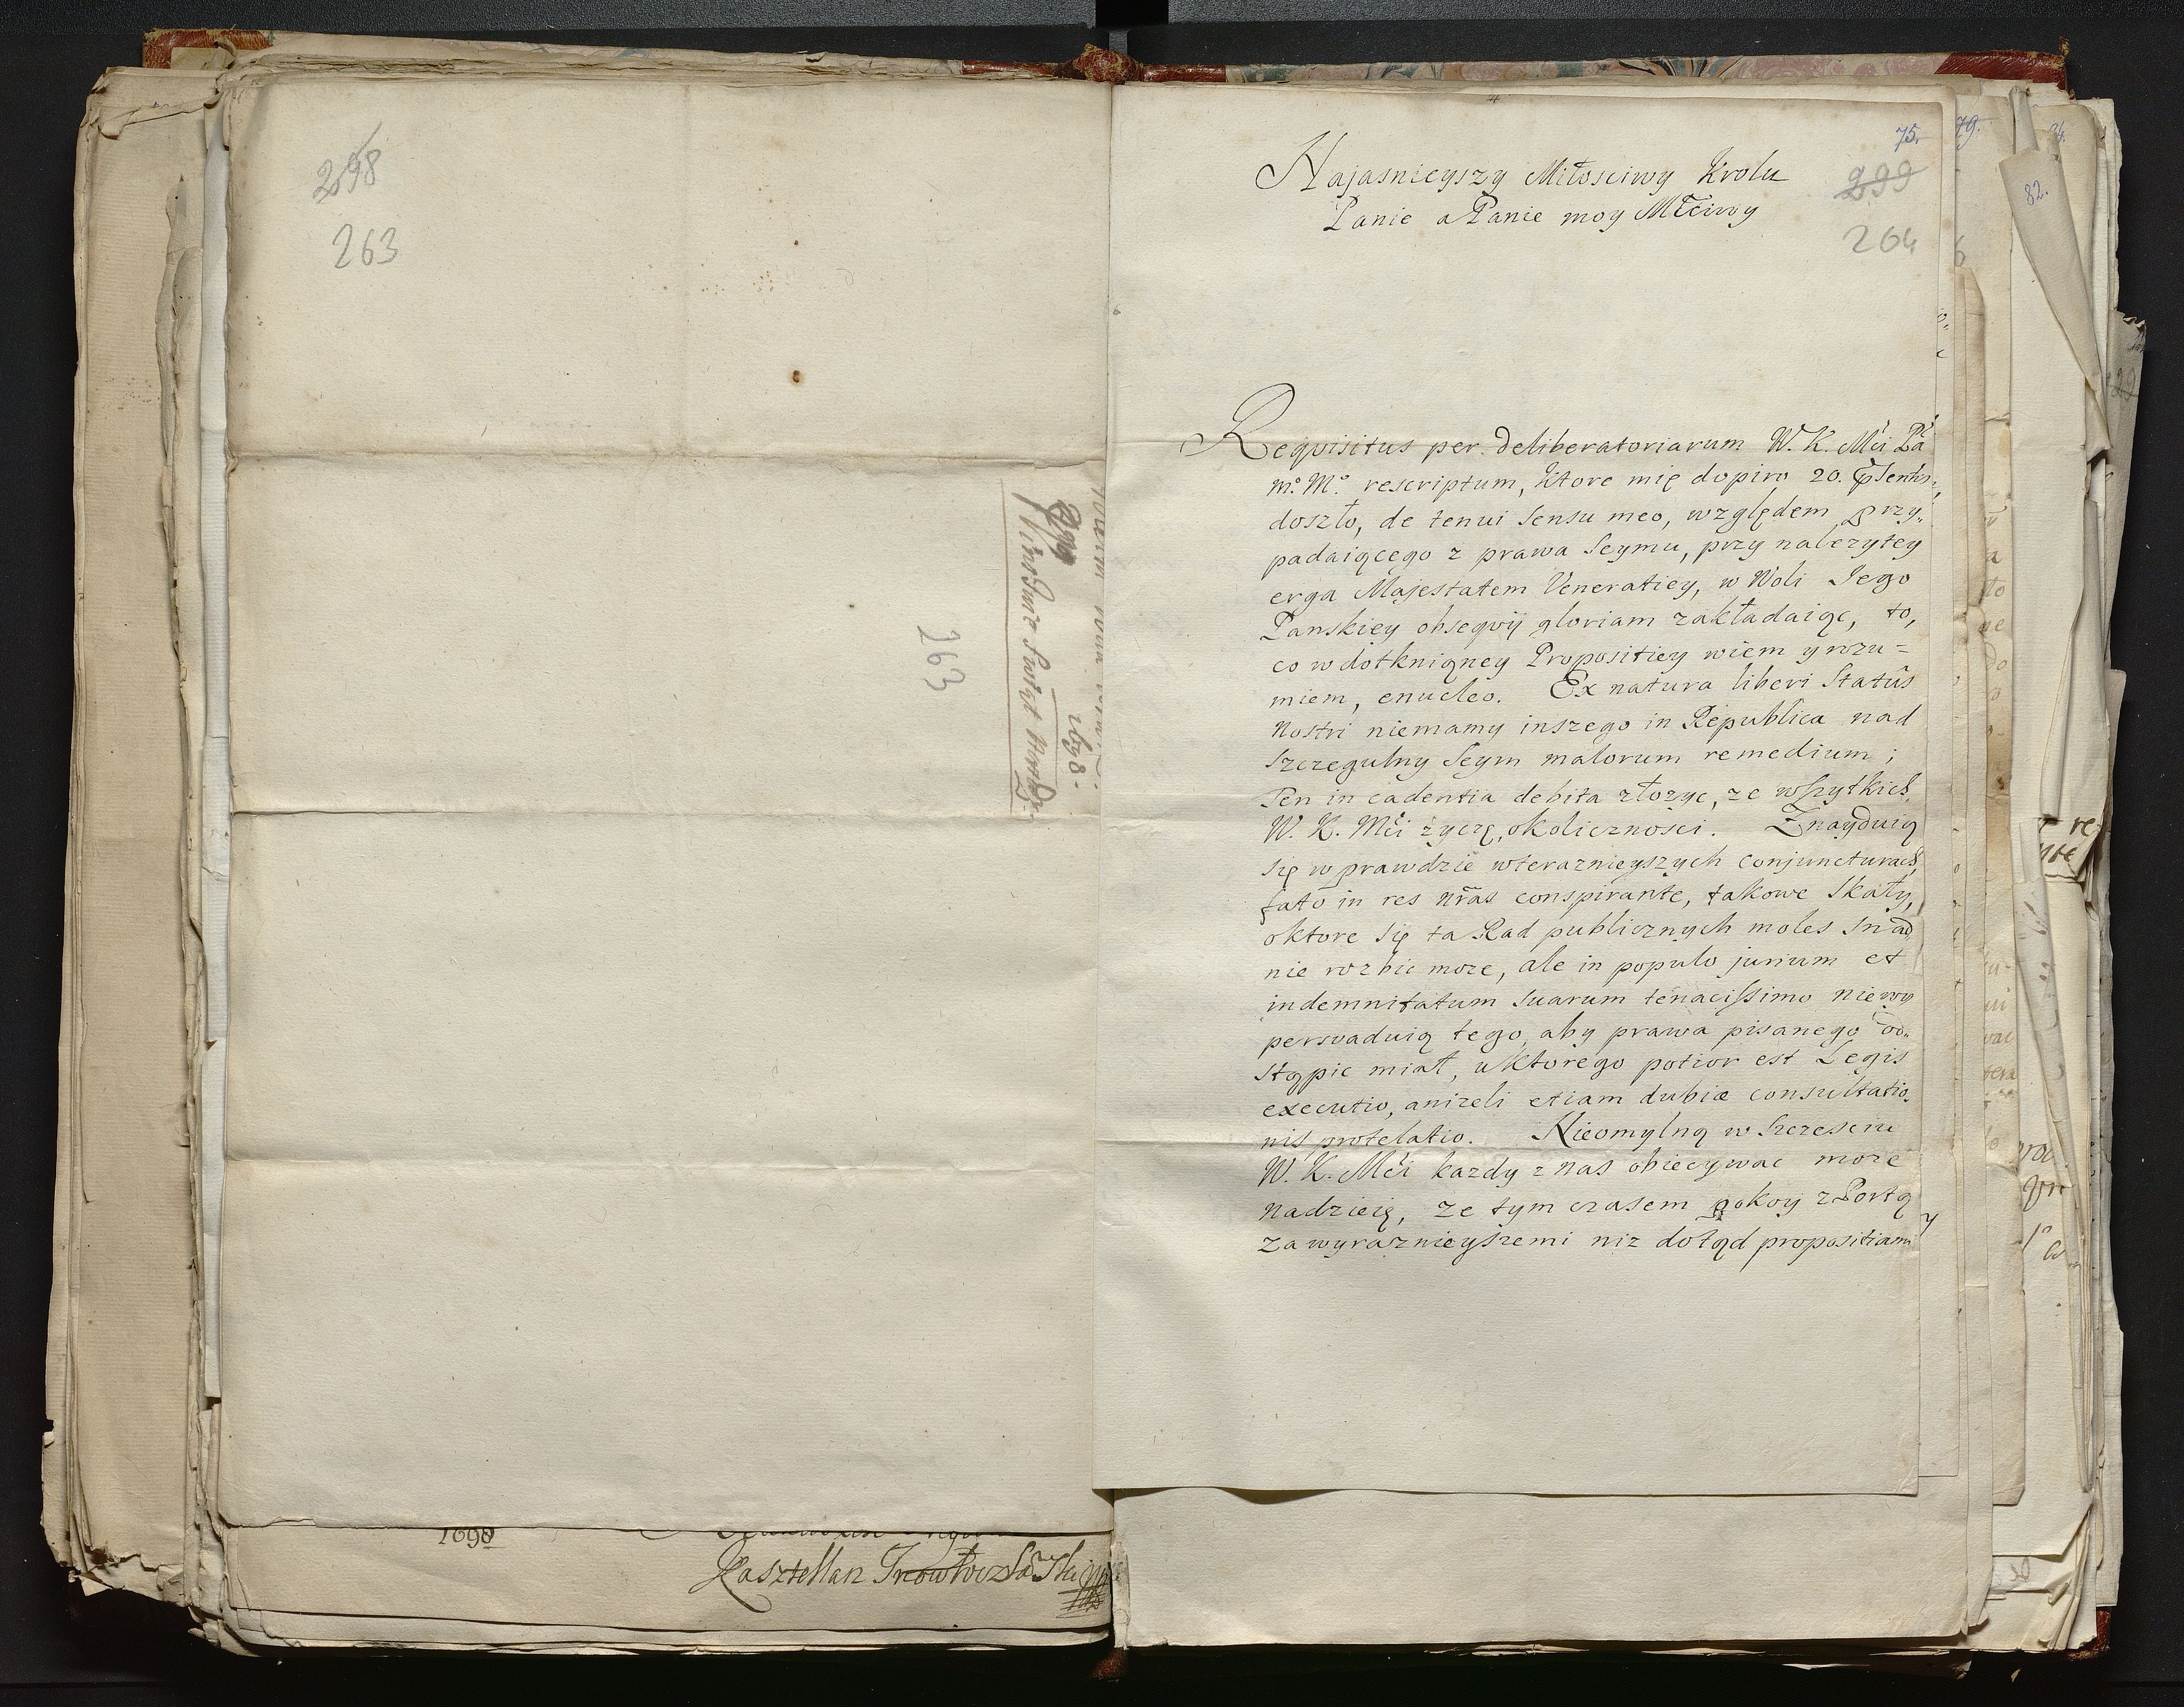 298
263
263
1698.
1690
Kasztellan
75.
Najasnieyszy Miłosciwy Krolu
299
Panie a Panie moy Młciwy
264
Reqvisitus per deliberatoriarum W. K. Mći Pa
m.º M.º rescriptum, ktore mię dopiro 20.
doszło, de tenui sensu meo, względem przy„
padaiącego z prawa Seymu, przy nalezytey
erga Majestatem Veneratiey, w Woli Jego
Panskiey obseqvij gloriam zakładaiąc, to,
co w dotknioney Propositiey wiem y rozu=
miem, enucleo. Ex natura liberi Statûs
Nostri niemamy inszego in Republica nad
szczegulny Seym malorum remedium;
Ten in cadentia debita złozyc, ze wszytkich
W. K. Mći zyczę okolicznosci. Znayduią
się w prawdzie wteraznieyszych conjuncturach,
fato in res nr̃as conspirante, takowe Skały,
oktore się ta Rad publicznych moles snad„
nie rozbic moze, ale in populo jurium et
indemnitatum suarum tenacissimo niewy
persvaduią tego, aby prawa pisanego od„
stąpic miał, uktorego potior est Legis
executio, anizeli etiam dubiæ consultatio„
nis protelatio. Nieomylną w Szczesciu
W. K. Mći kazdy z nas obiecywac moze
nadzieię, ze tym czasem pokoy z Portą
za wyraznieyszemi niz dotąd propositiami
y
79.
82.